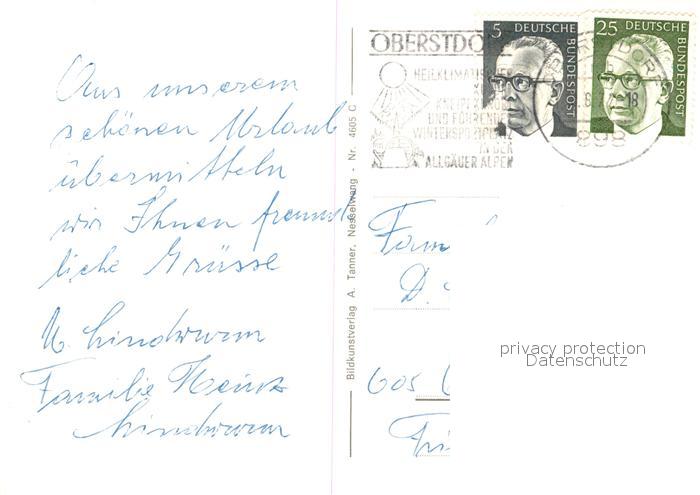 Aus unserem
schönen Urlaub
übermitteln
wir Ihnen freund-
liche Grüsse
M. Lindwurm
Familie Heinz
Lindwurm
Bildkunstverlag A. Tanner, Nesselwang - Nr. 4605 C
OBERSTDO
HEILKLIMATISCHER
UND FÜHRENDER
IN DER
ALLGÄUER ALPEN
5 DEUTSCHE
BUNDESPOST
25 DEUTSCHE
BUNDESPOST
18
898
Fam
D.
605
privacy protection
Datenschutz